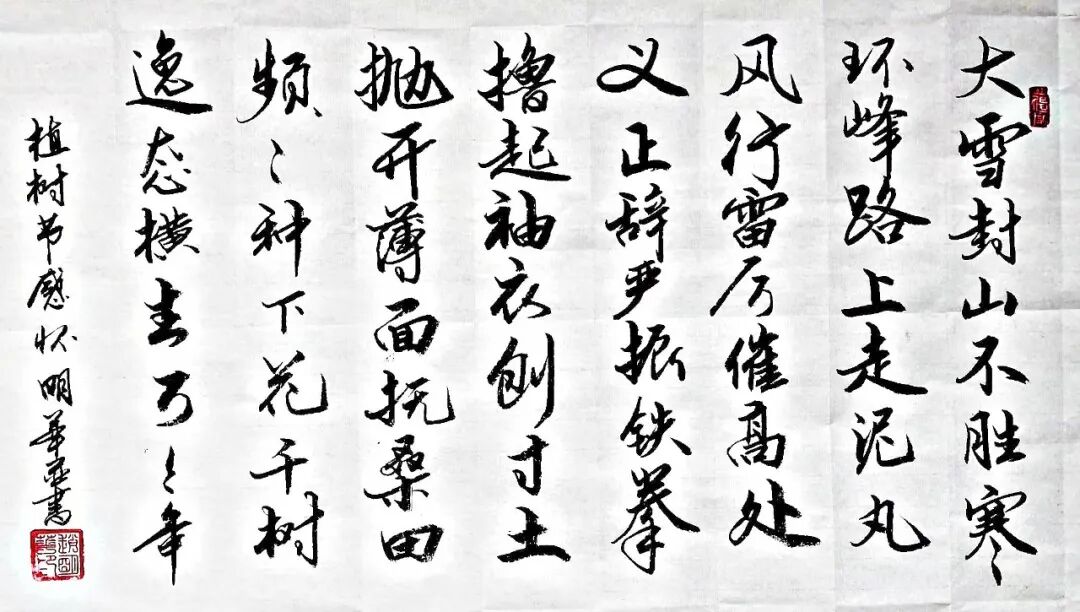 大雪封山不胜寒
环峰路上走泥丸
风行雷厉催高处
义正辞严振铁拳
撸起袖衣刨寸土
抛开薄面抚桑田
频〻种下花千树
逸态横万〻年
植树节感怀 明华书